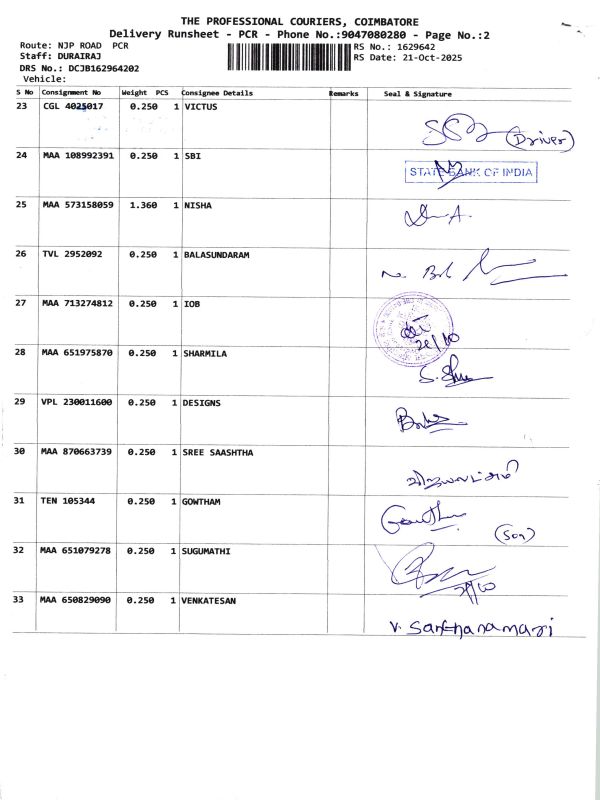 THE PROFESSIONAL COURIERS, COIMBATORE
Delivery Runsheet - PCR - Phone No.:9047080280 - Page No.:2
Route: NJP ROAD PCR
RS No.: 1629642
Staff: DURAIRAJ
RS Date: 21-Oct-2025
DRS No.: DCJB162964202
Vehicle:
S No Consignment No Weight PCS Consignee Details Remarks Seal & Signature
23 CGL 4025017 0.250 1 VICTUS
(Driver)
24 MAA 108992391 0.250 1 SBI
STATE BANK OF INDIA
25 MAA 573158059 1.360 1 NISHA
26 TVL 2952092 0.250 1 BALASUNDARAM
27 MAA 713274812 0.250 1 IOB
28 MAA 651975870 0.250 1 SHARMILA
29 VPL 230011600 0.250 1 DESIGNS
30 MAA 870663739 0.250 1 SREE SAASHTHA
31 TEN 105344 0.250 1 GOWTHAM
(Son)
32 MAA 651079278 0.250 1 SUGUMATHI
33 MAA 650829090 0.250 1 VENKATESAN
V. Santhanamari